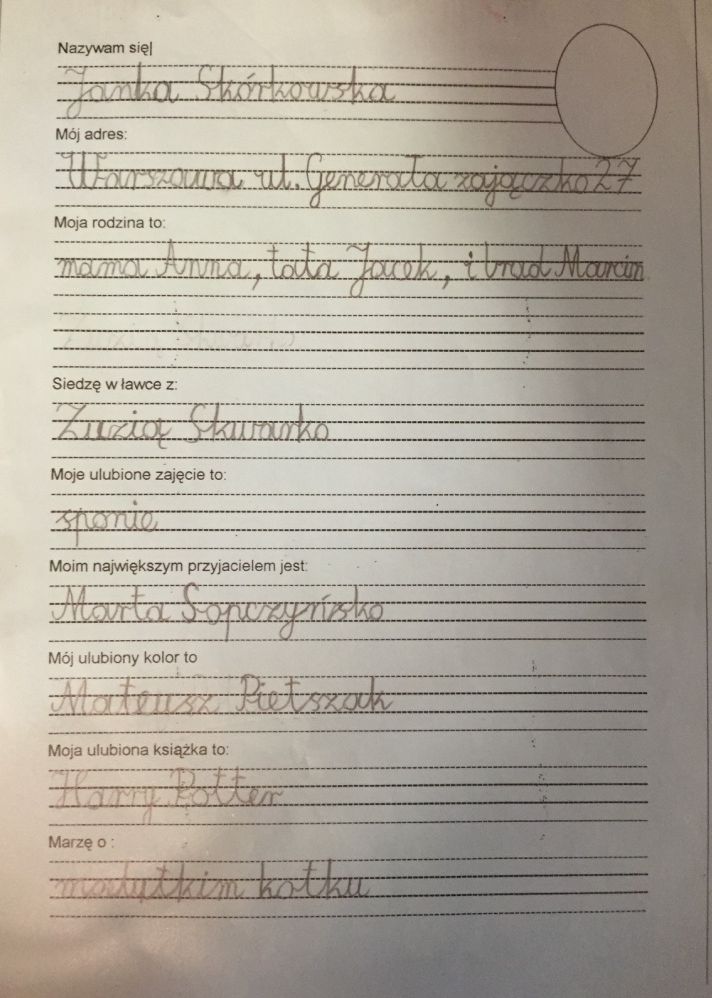 Nazywam się|
Janka Skórkowska
Mój adres:
Warszawa ul. Generała zajączka 27
Moja rodzina to:
mama Anna, tata Jacek, i brat Marcin
Siedzę w ławce z:
Zuzią Skwarko
Moje ulubione zajęcie to:
spanie
Moim największym przyjacielem jest:
Marta Sopczyńska
Mój ulubiony kolor to
Mateusz Pietszak
Moja ulubiona książka to:
Harry Potter
Marzę o :
malutkim kotku